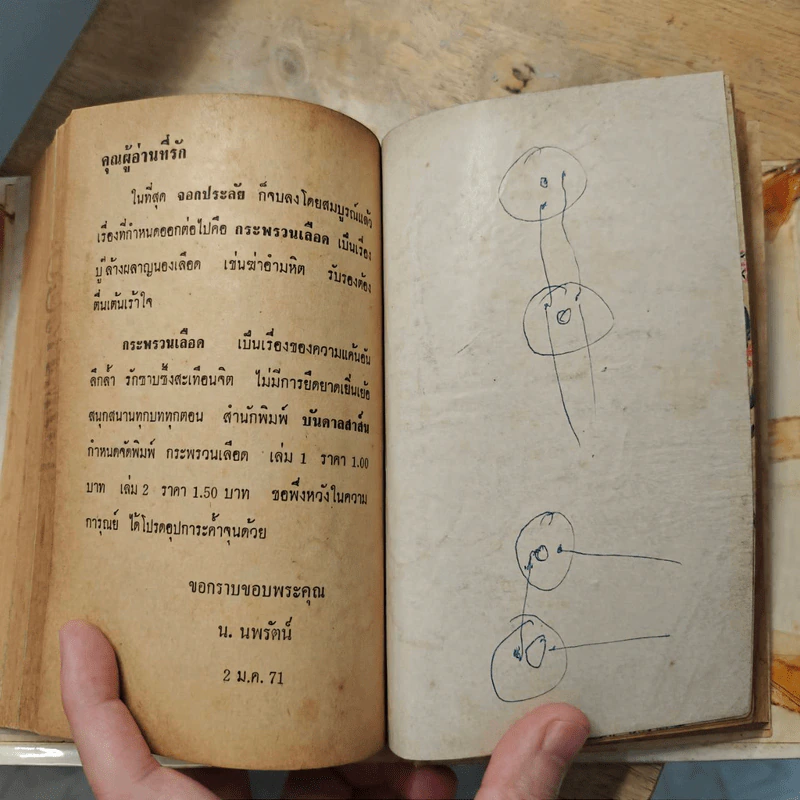 คุณผู้อ่านที่รัก
ในที่สุด จอกประลัย ก็จบลงโดยสมบูรณ์แล้ว
เรื่องที่กำหนดออกต่อไปคือ กระพรวนเลือด เป็นเรื่อง
บู๊ล้างผลาญนองเลือด เข่นฆ่าอำมหิต รับรองต้อง
ตื่นเต้นเร้าใจ
กระพรวนเลือด เป็นเรื่องของความแค้นอัน
ลึกล้ำ รักซาบซึ้งสะเทือนจิต ไม่มีการยืดยาดเยิ่นเย้อ
สนุกสนานทุกบททุกตอน สำนักพิมพ์ บันดาลสาส์น
กำหนดจัดพิมพ์ กระพรวนเลือด เล่ม 1 ราคา 1.00
บาท เล่ม 2 ราคา 1.50 บาท ขอพึ่งหวังในความ
การุณย์ ได้โปรดอุปการะค้ำจุนด้วย
ขอกราบขอบพระคุณ
น. นพรัตน์
2 ม.ค. 71